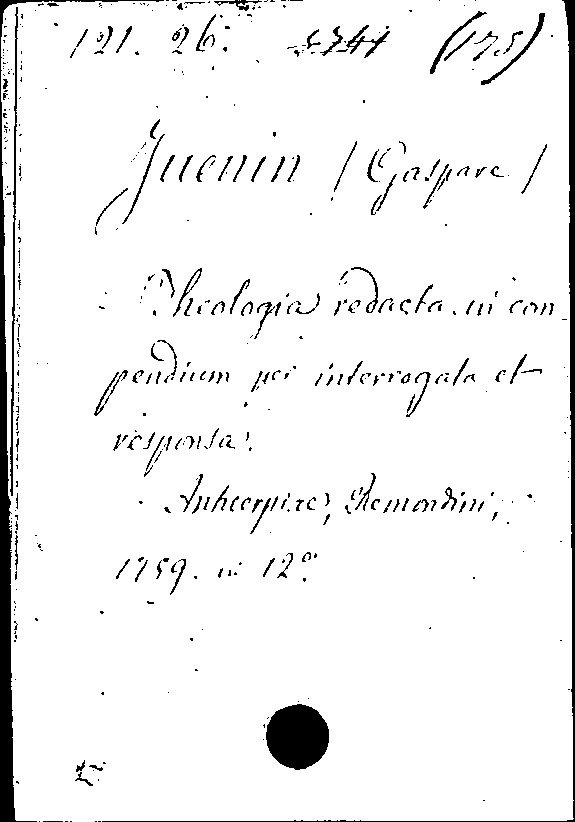 121. 26. (175)
Juenin / Gaspare /
Theologia redacta in com
pendium per interrogata et
responsa.
Antverpiae, Remondini,
1759. in 12°